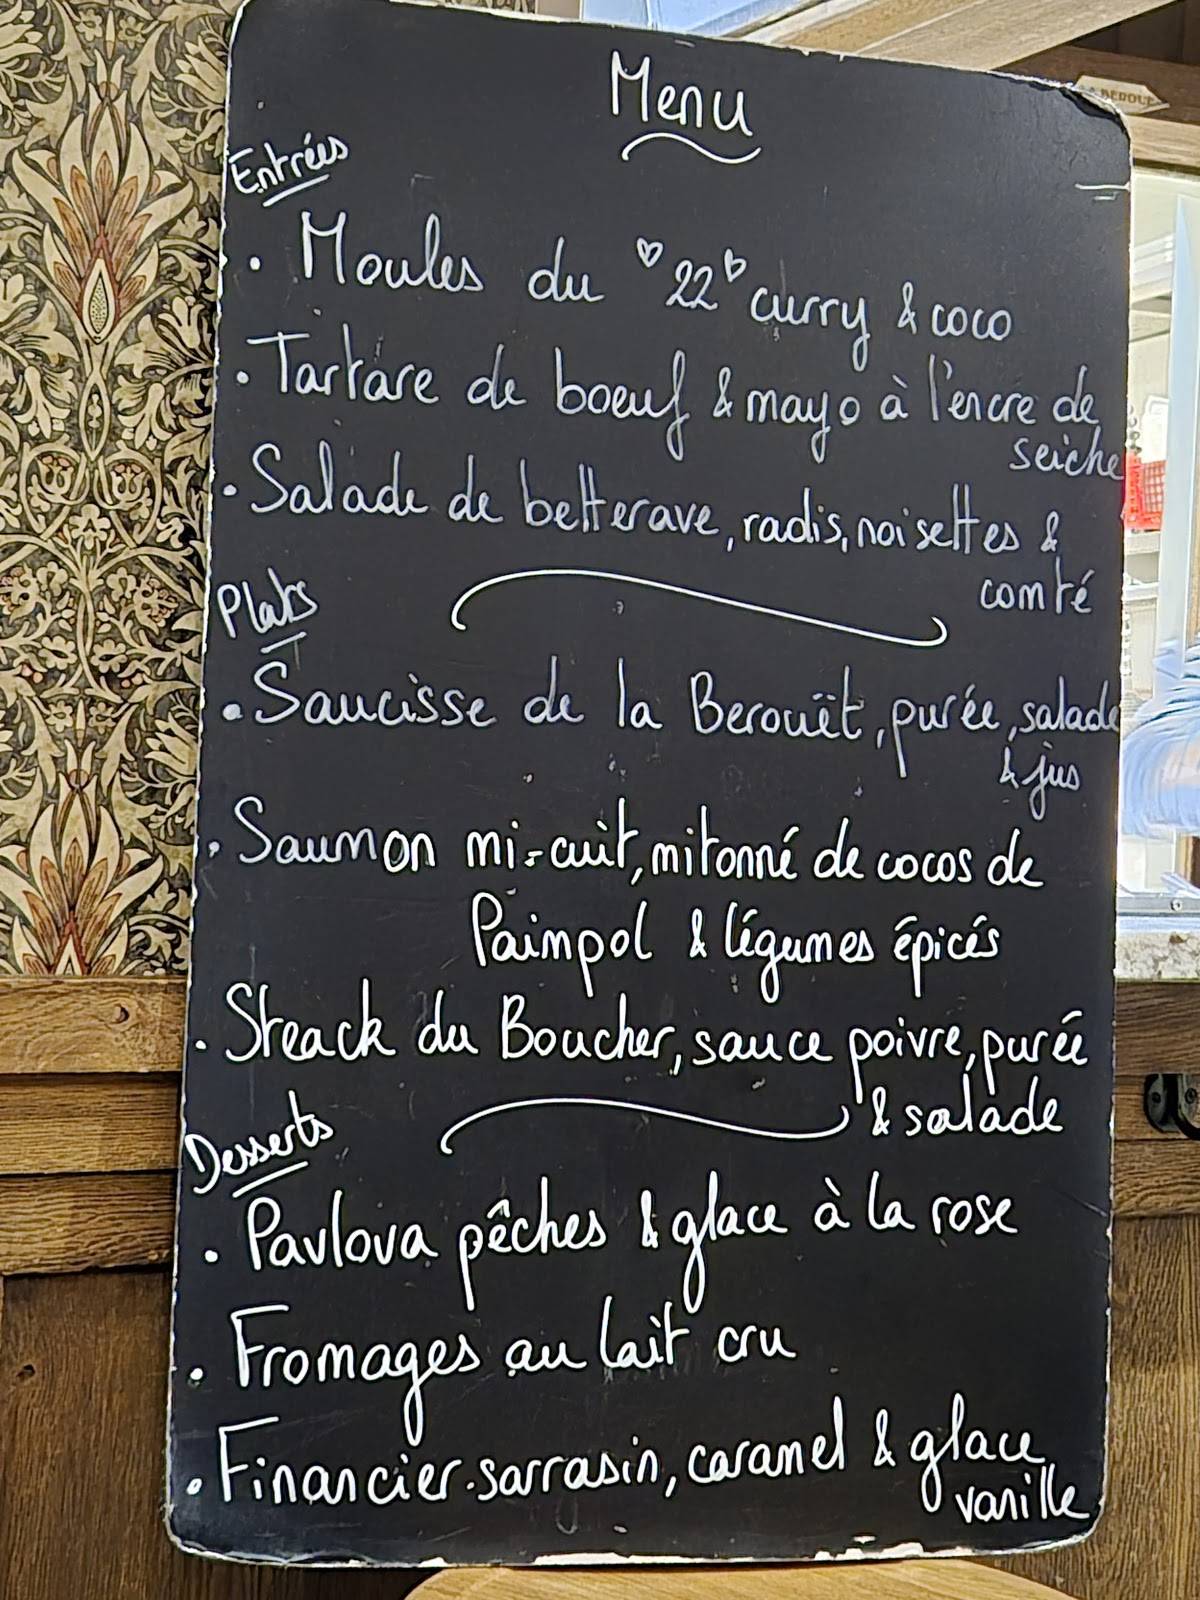 Menu
Entrées
· Moules du "22" curry & coco
· Tartare de boeuf & mayo à l'encre de
seiche
· Salade de betterave, radis, noisettes &
comté
Plats
· Saucisse de la Berouët, purée, salade
& jus
· Saumon mi-cuit, mitonné de cocos de
Paimpol & légumes épicés
· Steack du Boucher, sauce poivre, purée
& salade
Desserts
· Pavlova pêches & glace à la rose
· Fromages au lait cru
· Financier sarrasin, caramel & glace
vanille